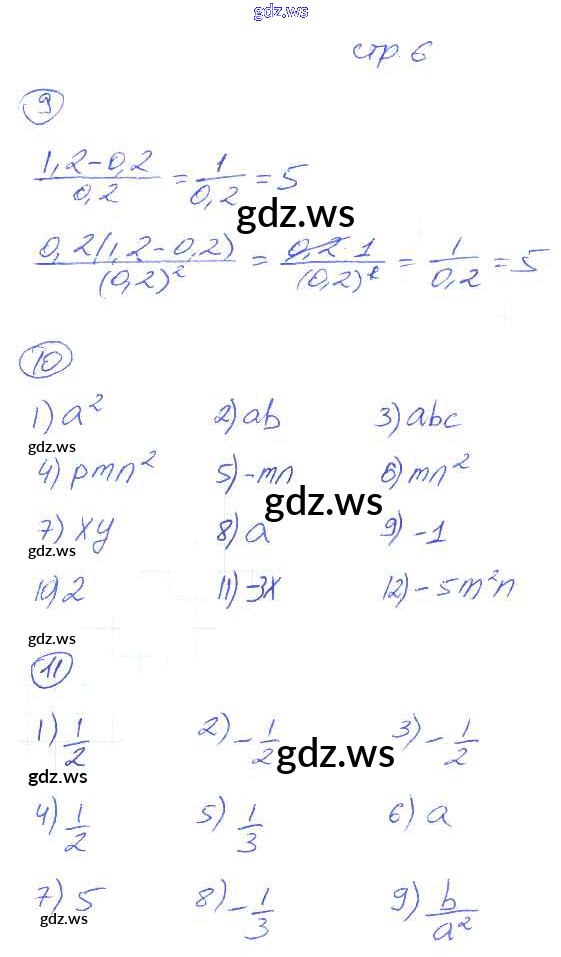 gdz.ws
стр. 6
9
(1,2-0,2)/0,2 = 1/0,2 = 5
gdz.ws
0,2(1,2-0,2)/(0,2)² = 0,2·1/(0,2)² = 1/0,2 = 5
10
1) a² 2) ab 3) abc
gdz.ws
4) pmn² 5) -mn 6) mn²
gdz.ws
7) xy 8) a 9) -1
gdz.ws
10) 2 11) -3x 12) -5m²n
gdz.ws
11
1) 1/2 2) -1/2 3) -1/2
gdz.ws
gdz.ws
4) 1/2 5) 1/3 6) a
7) 5 8) -1/3 9) b/a²
gdz.ws